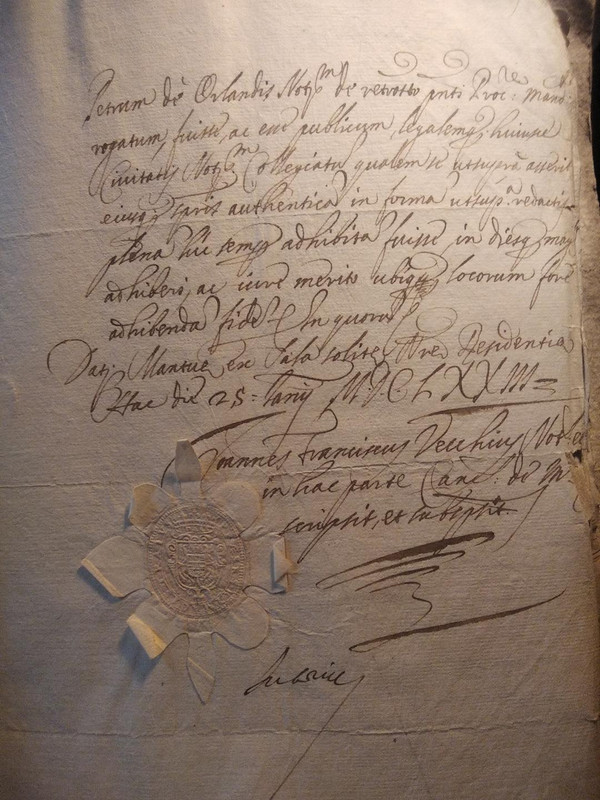 Petrum de Orlandis Not.m de retrotto pnti Proc.re Mand:
rogatum fuisse, ac esse publicum, legalemq. huiusce
Civitatis Not.m Collegiatu qualem se ut supra asserit
eiusq. authentica in forma ut sup.a redactis
plena huc temp. adhibita fuisse in diesq. mag
adhiberi, ac iure merito ubiq. locorum fore
adhibenda fide In quoru
Dat. Mantue, ex Sala solite Residentia
Hac die 25 M.D.C.LXXIII
Joannes Franciscus Vecchius Not.
in hac parte Canc: de m.
scripsit, et subspsit.